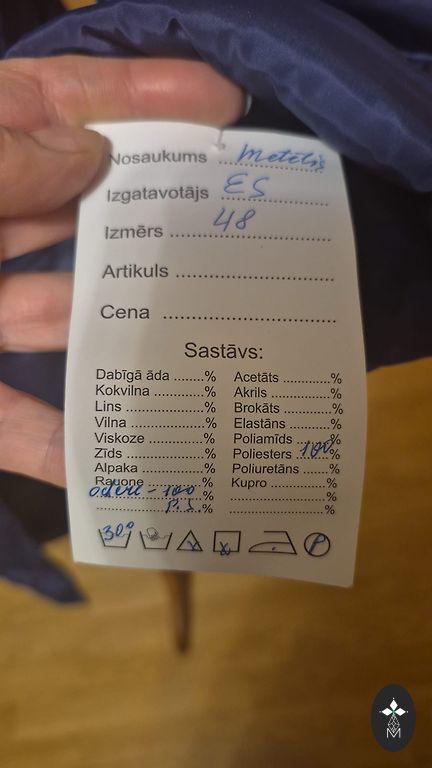 Nosaukums Metelis
Izgatavotājs ES
Izmērs 48
Artikuls
Cena
Sastāvs:
Dabīgā āda ........% Acetāts ............%
Kokvilna ..............% Akrils ................%
Lins .....................% Brokāts .............%
Vilna ....................% Elastāns ............%
Viskoze ...............% Poliamīds ..........%
Zīds .....................% Poliesters 100 %
Alpaka .................% Poliuretāns ........%
Rayone ................% Kupro ................%
odere - 100 % ............%
P.S. % ............%
30° P
M